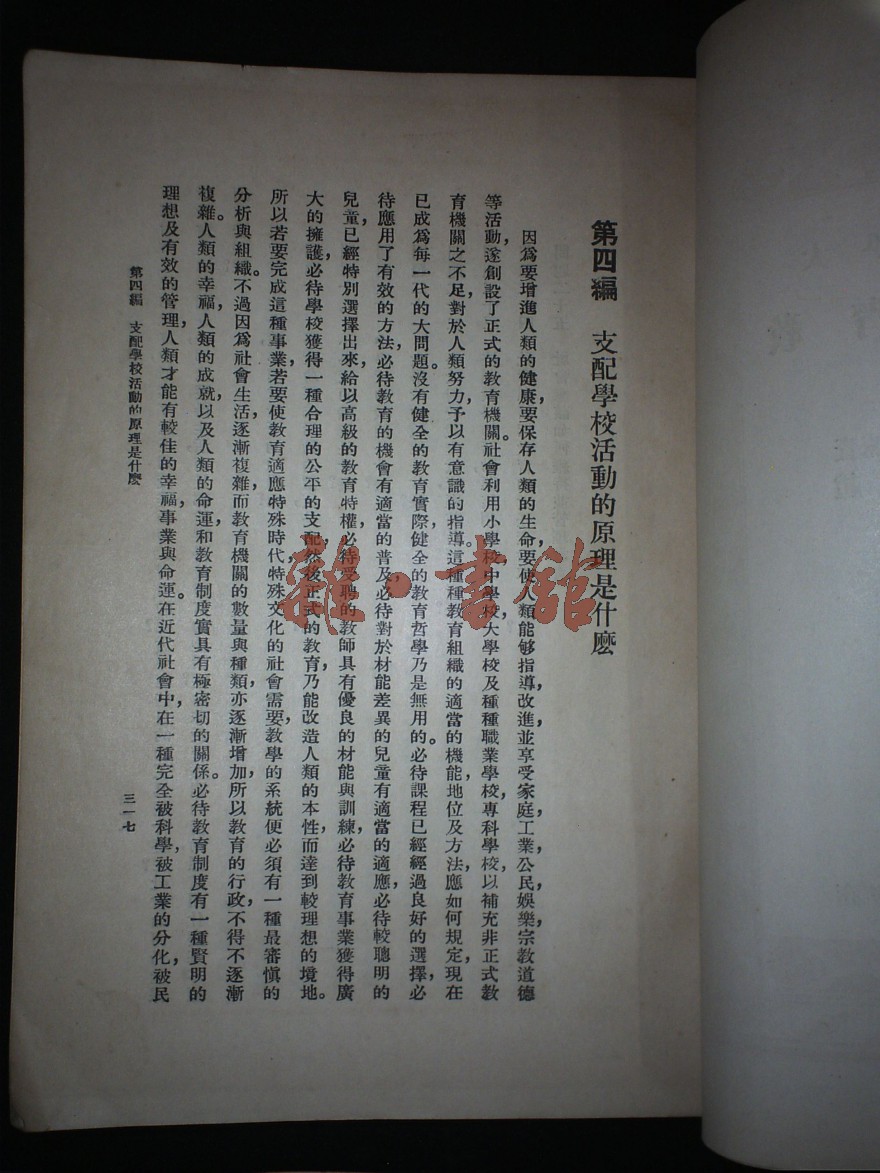 第四編　支配學校活動的原理是什麽
因爲要增進人類的健康，要保存人類的生命，要使人類能够指導，改進，並享受家庭，工業，公民，娛樂，宗教道德
等活動，遂創設了正式的教育機關。社會利用小學校，中學校，大學校及種種職業學校，專科學校，以補充非正式教
育機關之不足，對於人類努力，予以有意識的指導。這種種教育組織的適當的機能，地位及方法，應如何規定，現在
已成爲每一代的大問題。沒有健全的教育實際，健全的教育哲學乃是無用的。必待課程已經經過良好的選擇，必
待應用了有效的方法，必待教育的機會有適當的普及，必待對於材能差異的兒童有適當的適應，必待較聰明的
兒童，已經特別選擇出來，給以高級的教育特權，必待受聘的教師具有優良的材能與訓練，必待教育事業獲得廣
大的擁護，必待學校獲得一種合理的公平的支配，然後正式的教育，乃能改造人類的本性，而達到較理想的境地。
所以若要完成這種事業，若要使教育適應特殊時代，特殊文化的社會需要，教學的系統便必須有一種最審愼的
分析與組織。不過因爲社會生活，逐漸複雜，而教育機關的數量與種類，亦逐漸增加，所以教育的行政，不得不逐漸
複雜。人類的幸福，人類的成就，以及人類的命運和教育制度實具有極密切的關係。必待教育制度有一種賢明的
理想及有效的管理，人類才能有較佳的幸福，事業與命運。在近代社會中，在一種完全被科學，被工業的分化，被民
第四編　支配學校活動的原理是什麽
三一七
雜·書館